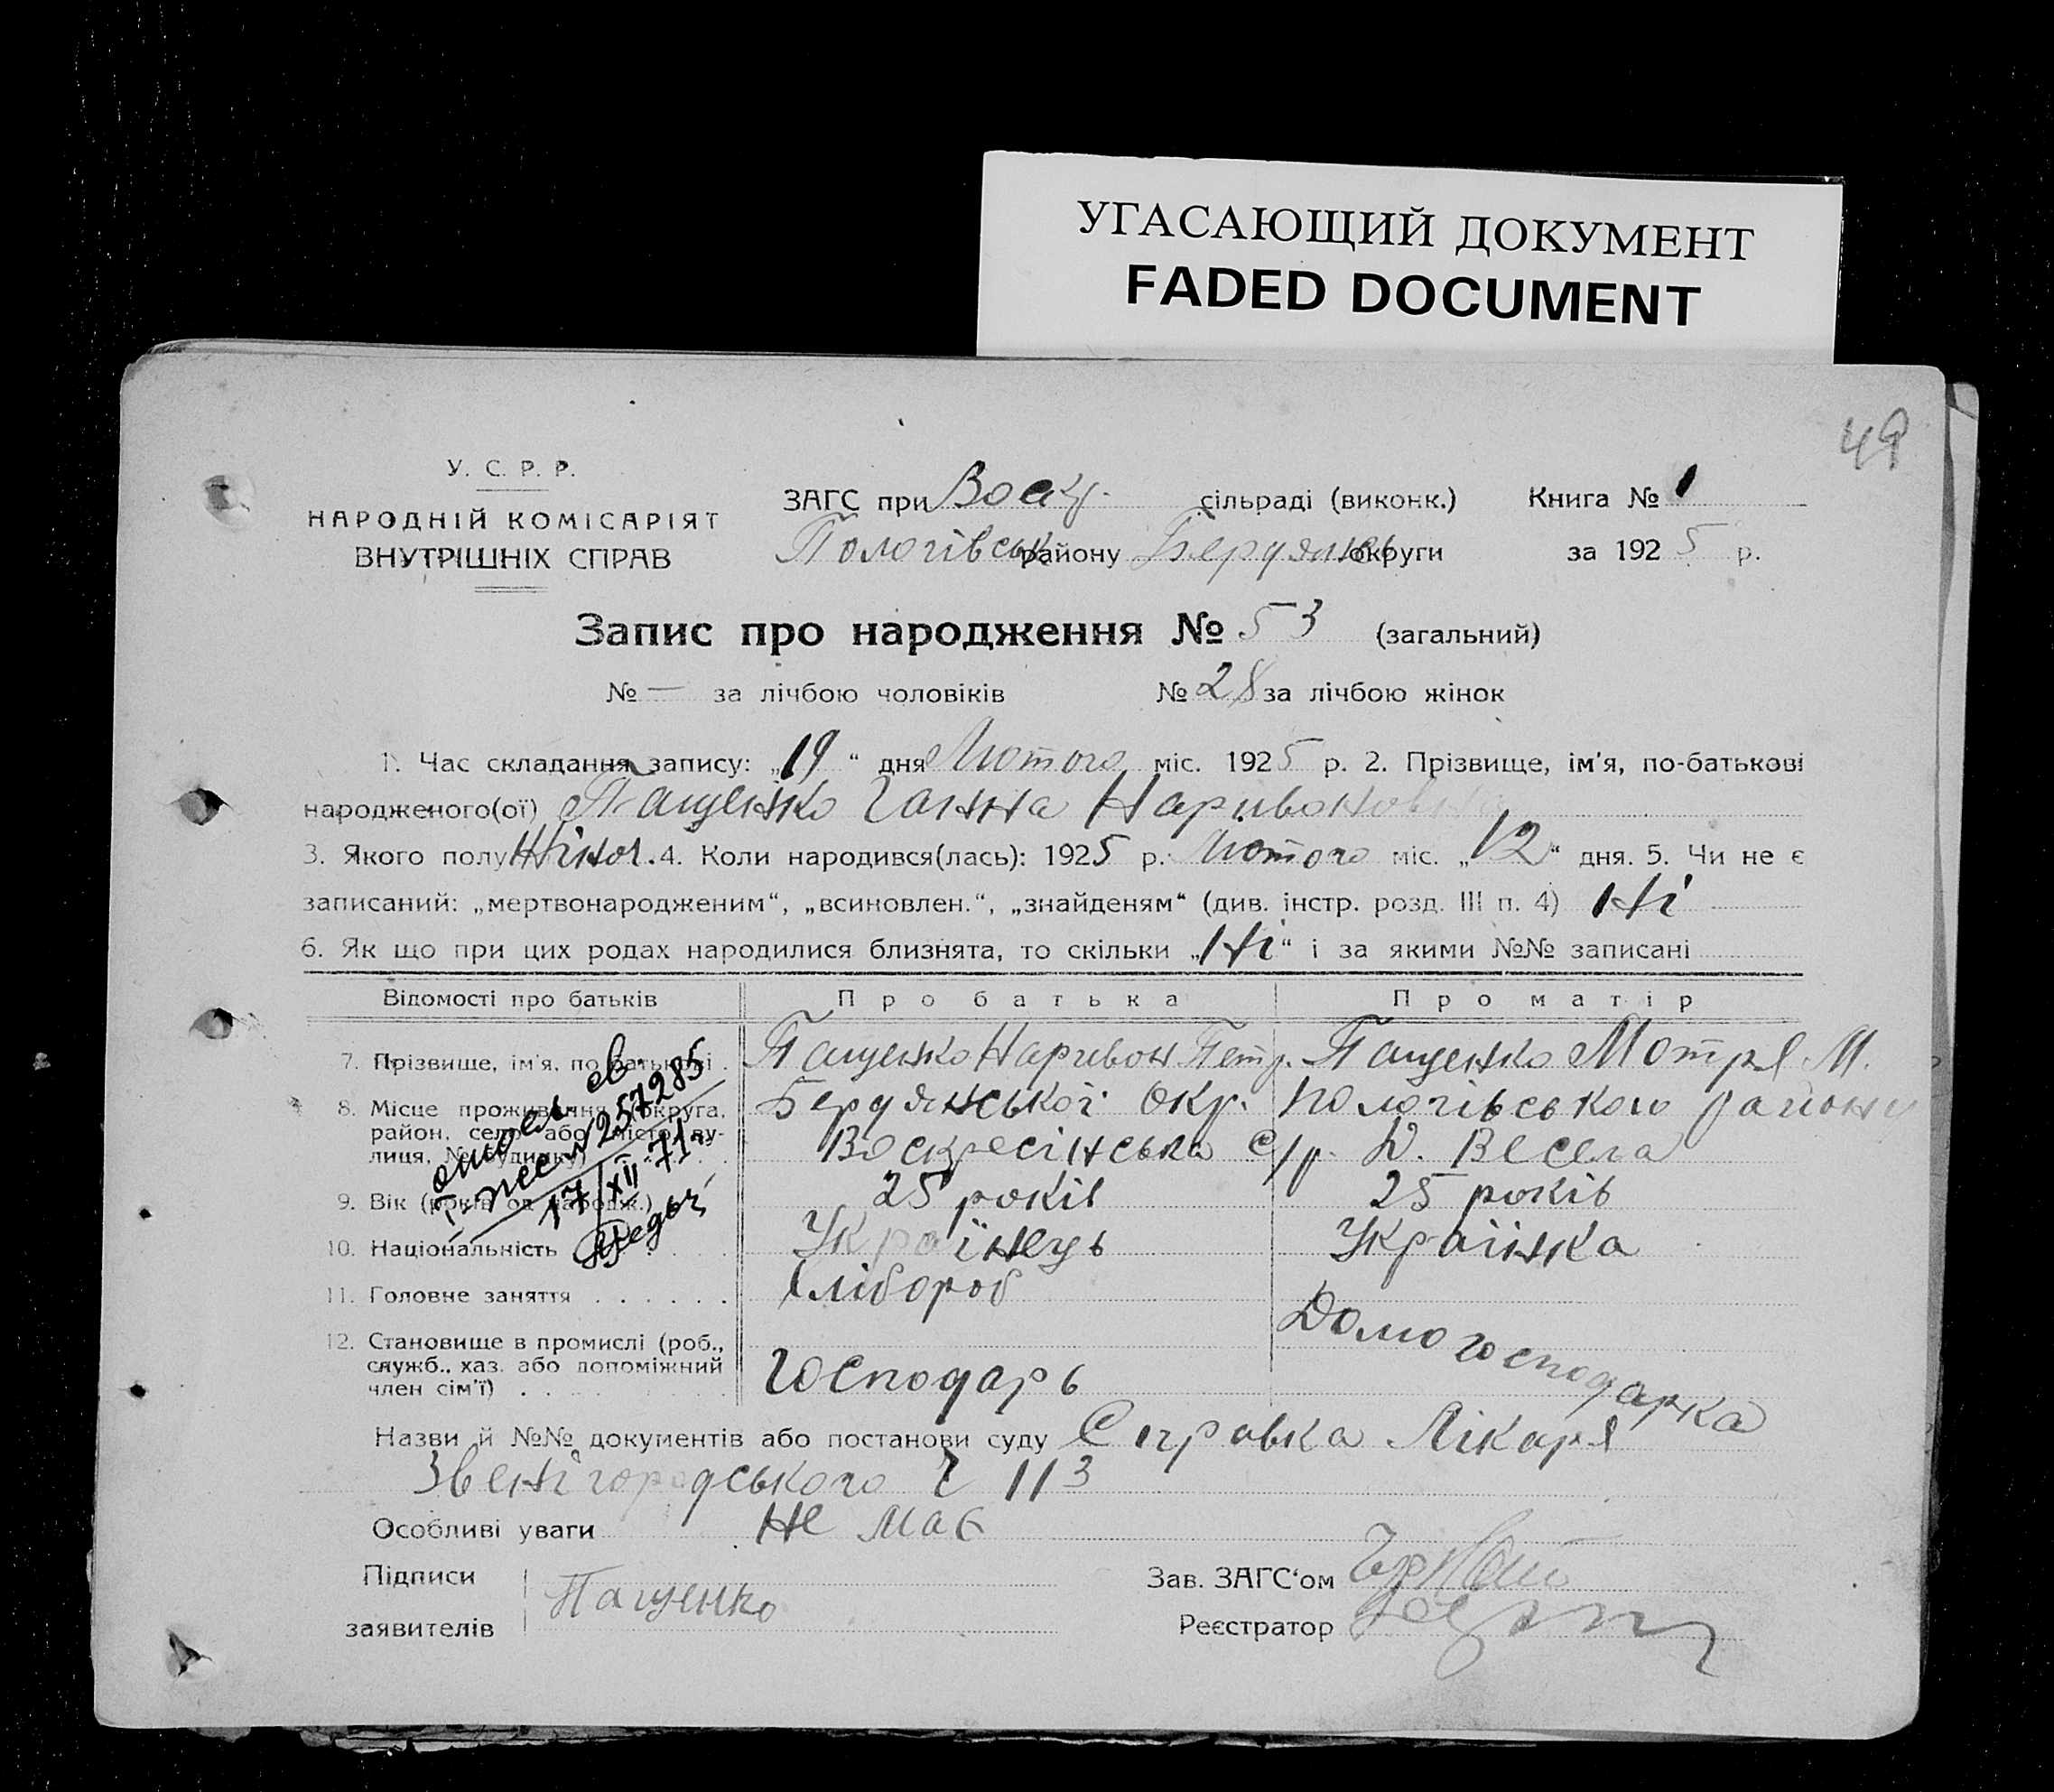 УГАСАЮЩИЙ ДОКУМЕНТ
FADED DOCUMENT
49
У. С. Р. Р.
НАРОДНІЙ КОМІСАРІЯТ
ВНУТРІШНІХ СПРАВ
ЗАГС при Воскр. сільраді (виконк.) Книга № 1
Пологівськ району Бердянськ округи за 1925 р.
Запис про народження № 53 (загальний)
№ — за лічбою чоловіків № 28 за лічбою жінок
1. Час складання запису: „19“ дня Лютого міс. 1925 р. 2. Прізвище, ім'я, по-батькові
народженого(ої) Пащенко Ганна Наривоновна
3. Якого полу Жіноч. 4. Коли народився(лась): 1925 р. Лютого міс. „12“ дня. 5. Чи не є
записаний: „мертвонародженим“, „всиновлен.“, „знайденям“ (див. інстр. розд. III п. 4) Ні
6. Як що при цих родах народилися близнята, то скільки „Ні“ і за якими №№ записані
Відомості про батьків Про батька Про матір
7. Прізвище, ім'я, по батькові . Пащенко Наривон Петр. Пащенко Мотря М.
8. Місце проживання (округа, район, село або місто, ву-
лиця, № будинку) Бердянської Окр. Пологівського району
Воскресінська С/р. Д. Весела
9. Вік (років од народж.) 25 років 25 років
10. Національність Українець Українка
11. Головне заняття . . . . . . Хлібороб Домогосподарка
12. Становище в промислі (роб.,
служб., хаз. або допоміжний
член сім'ї) Господарь
257285
17/XII-71
Назви й №№ документів або постанови суду Справка Лікаря
Звенігородського Ч 113
Особливі уваги Не має
Підписи
заявителів Пащенко
Зав. ЗАГС'ом
Реєстратор